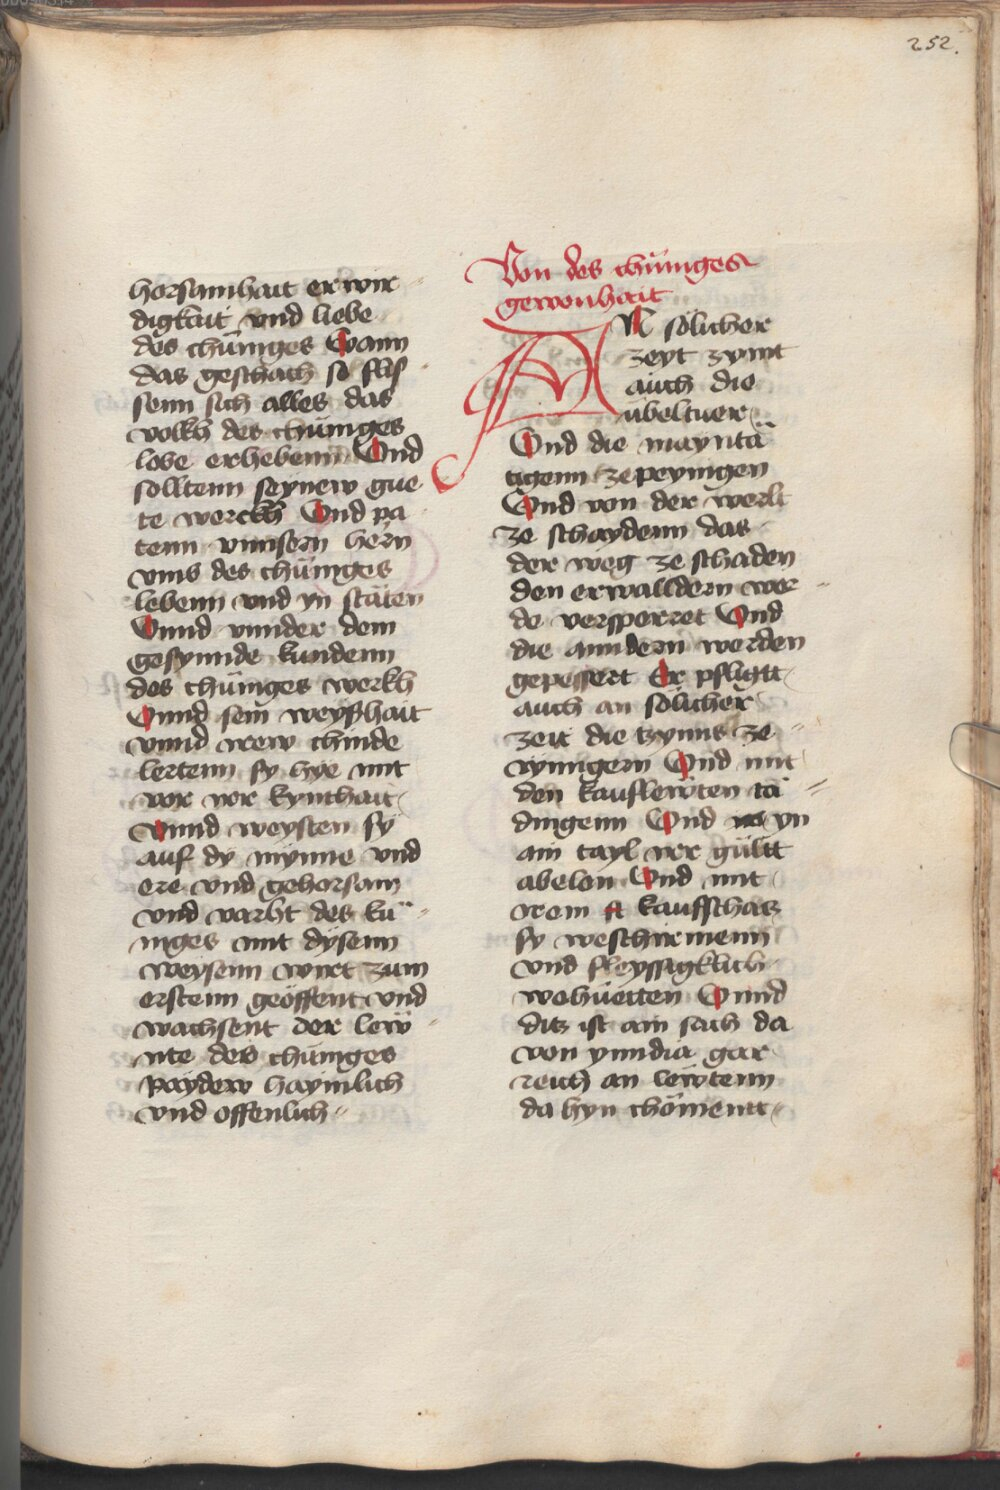 252.
horsamhait er wir
digkait vnd liebe
des chüniges Wann
das geschach so flis
senn sich alles das
volkh des chüniges
lobe erhebenn Vnd
solltenn seynew gue
te werckh Vnd pa
tenn vnnsern hern
vmb des chüniges
lebenn vnd yn stäten
Vnnd vnnder dem
gesynnde kundenn
des chüniges werkh
Vnnd sein weyßhait
vnnd wew chinde
lertenn sy hye mit
vor vor kynthait
Vnnd weysten sy
auf dy mynne vnd
ere vnd gehorsam
vnd varht des kü
niges mit dysenn
weysenn wirt zum
erstenn geöffent vnd
wachsent der lew
nte des chüniges
Paydew haymlich
vnd offenlich
Von des chüniges
gewonhait
AN solicher
zeyt zymt
auch die
ubeltuer
Vnd die maynta
tigenn ze peynigen
Vnd von der werlt
ze schaydenn das
der weg ze schaden
den erwalldern wer
de versperret Vnd
die anndern werden
gepessert Er pfligtt
auch an solicher
zeit die tzynns ze
rynngern Vnd mit
den kauflewten tä
dingenn Vnd yn
ain tayl ver gültt
abelon Vnd mit
irem kaufschatz
sy weschirmenn
vnd fleyssigklich
wehüetten Vnnd
ditz ist ain sach da
von ynndia gar
reich an lewtenn
da hyn chömentt